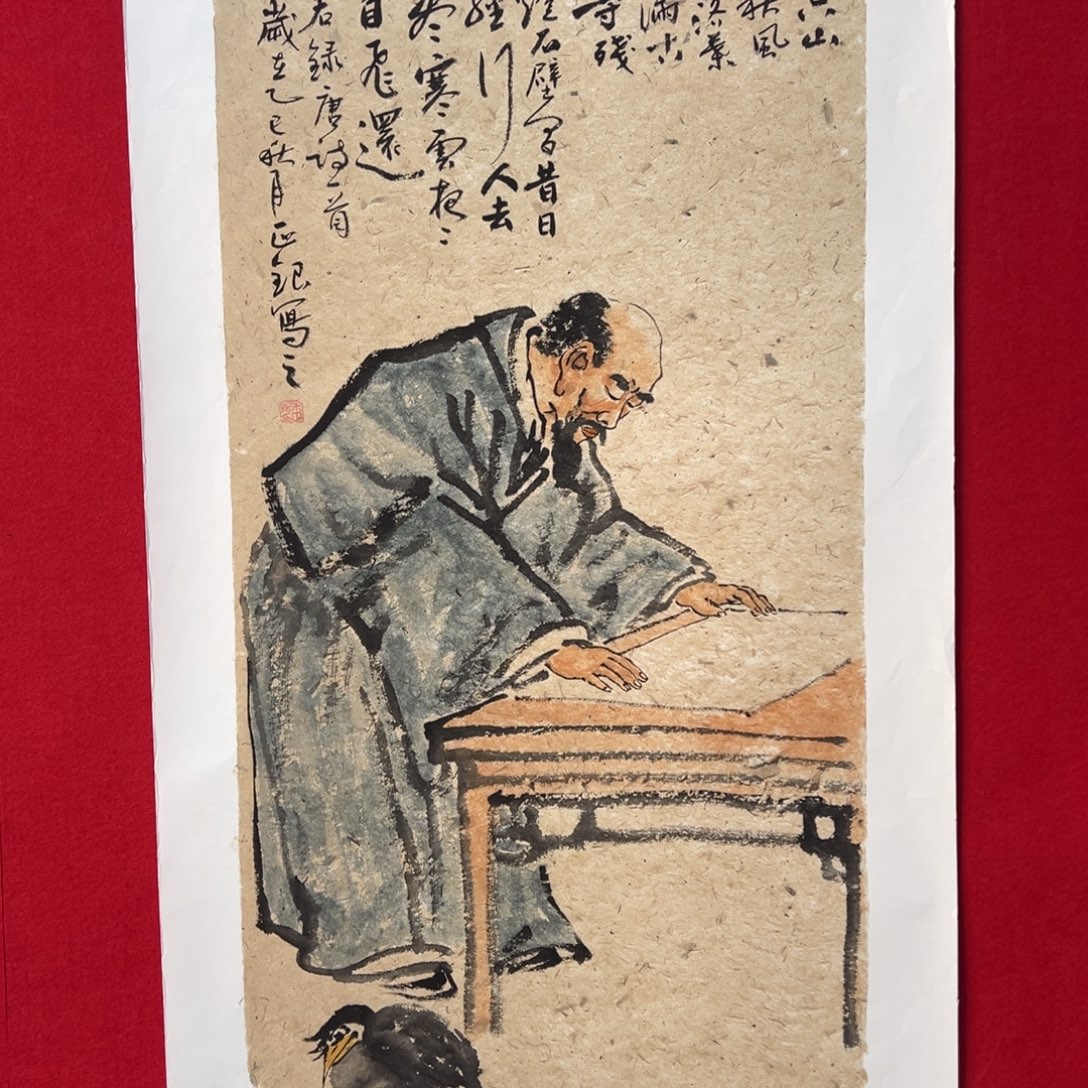 山
秋风
落葉
滿空
寺殘
燈石壁間昔日
經行人去
盡寒雲夜々
自飛還
右錄唐詩一首
歲在乙巳秋月正銀寫之